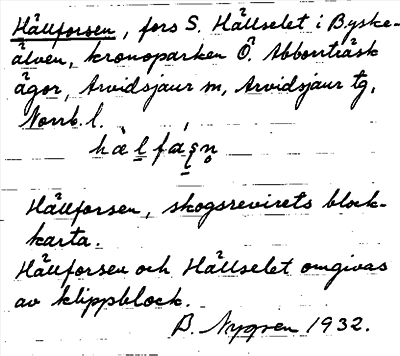 Hällforsen, fors S. Hällselet i Byske-
älven, kronoparken Ö. Abborrträsk
ägor, Arvidsjaur sn, Arvidsjaur tg,
Norrb. l.
Hällforsen, skogsrevirets block-
karta.
Hällforsen och Hällselet omgivas
av klippblock.
B. Nygren 1932.